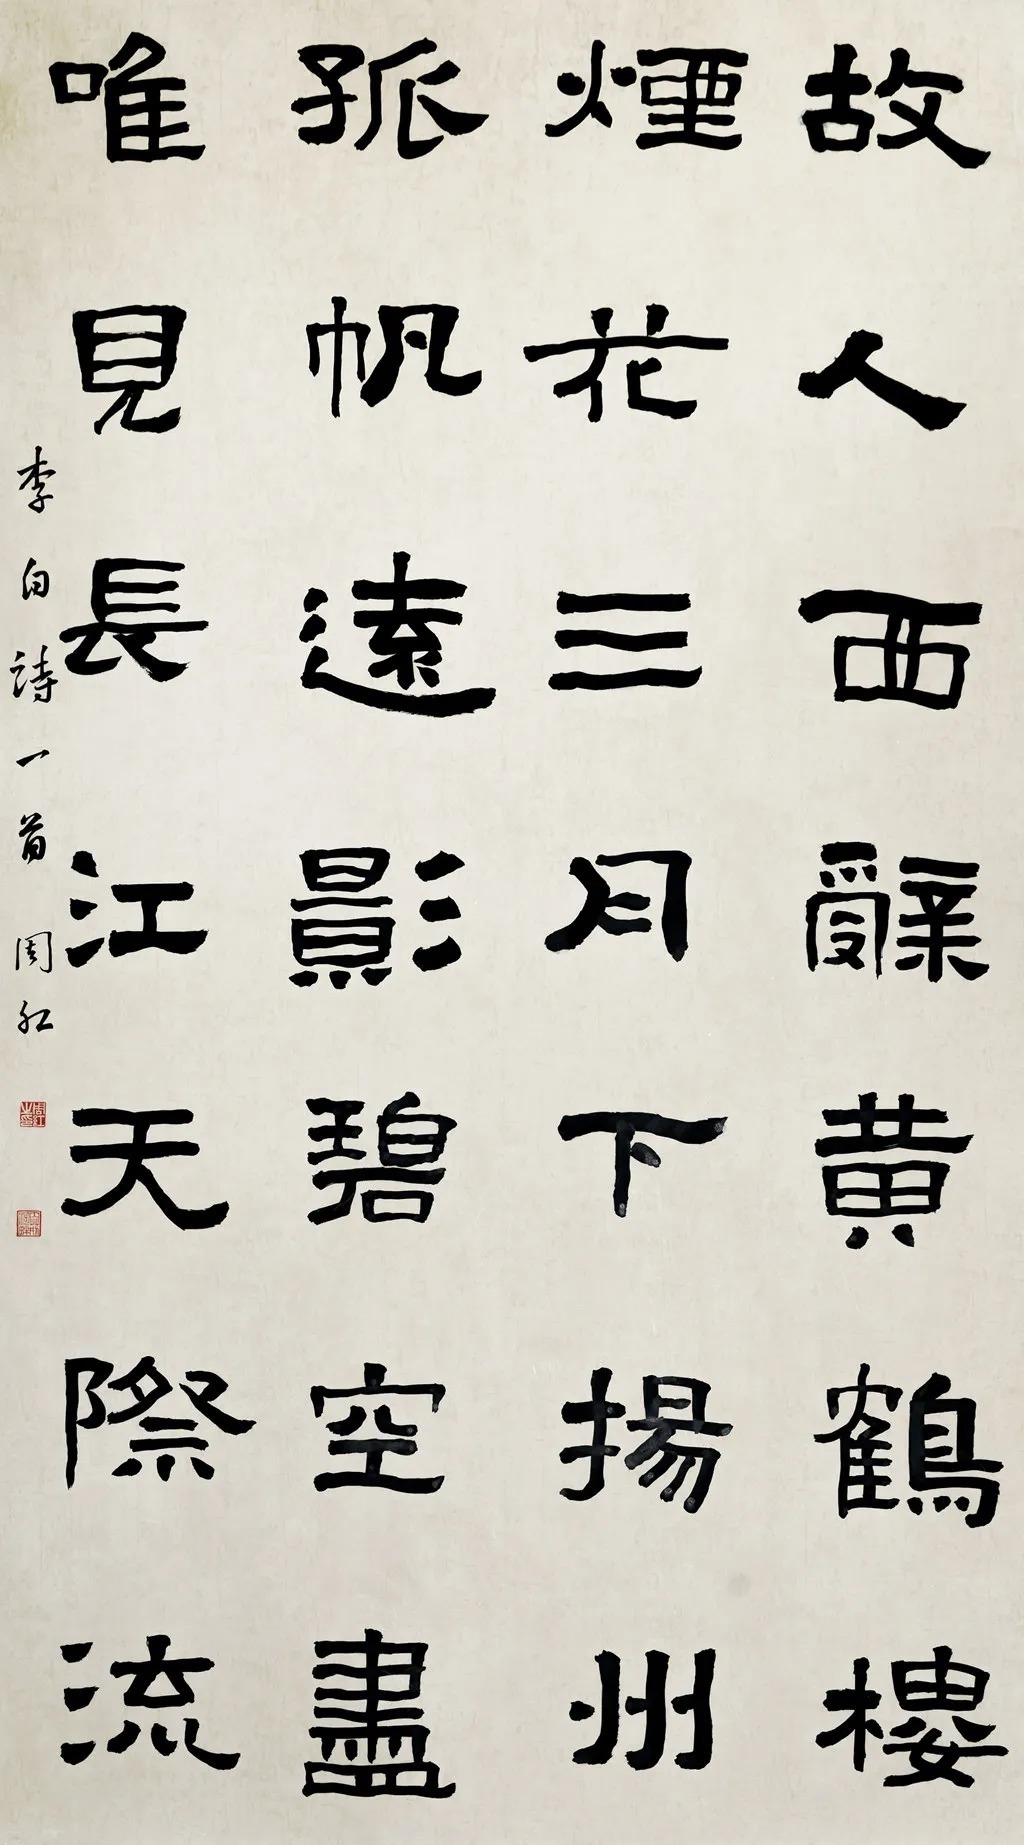 故人西辭黄鶴樓
煙花三月下揚州
孤帆遠影碧空盡
唯見長江天際流
李白詩一首 周紅